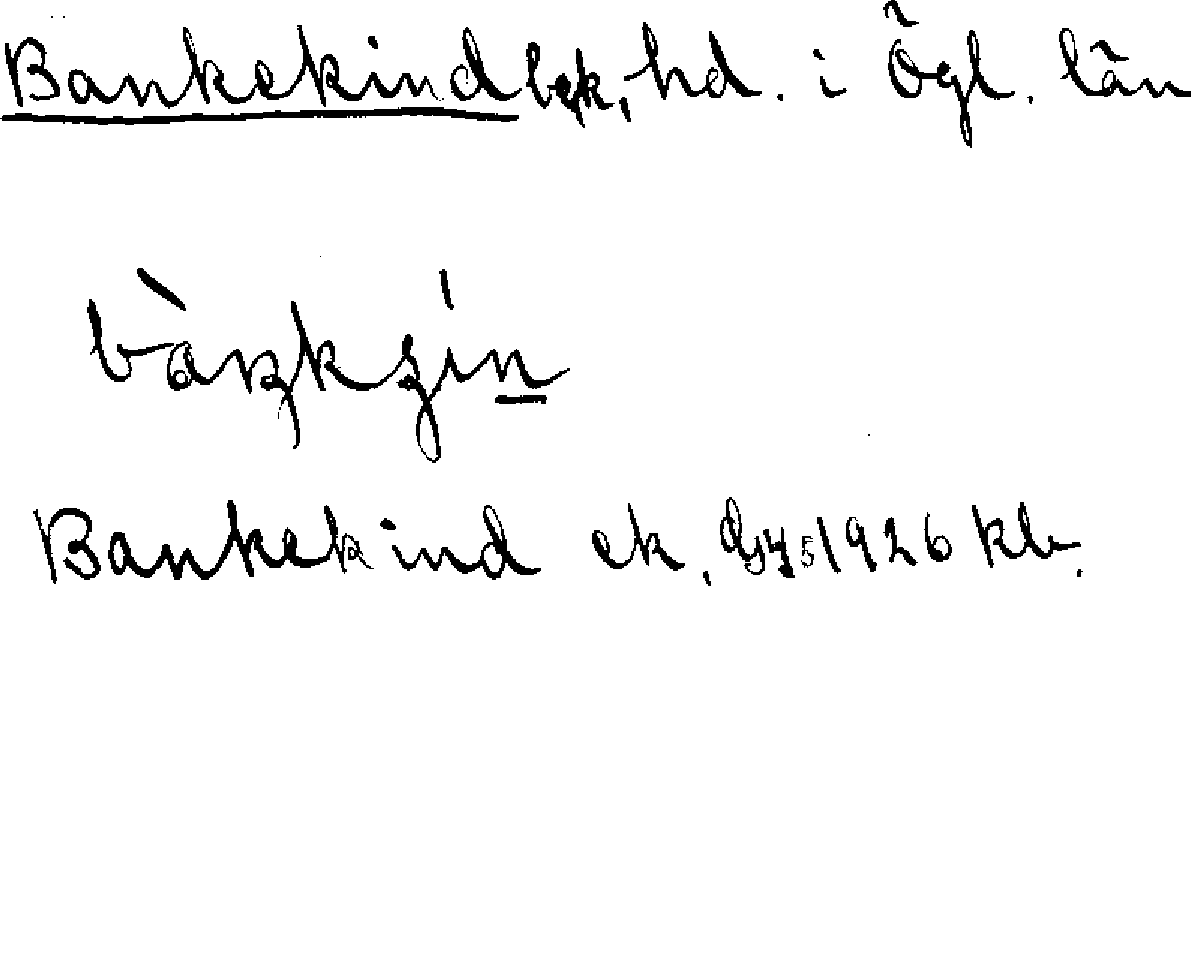 Bankekind bgk, hd. i Ögl. län
bàŋkʒín
Bankekind ek. 1926 kb.